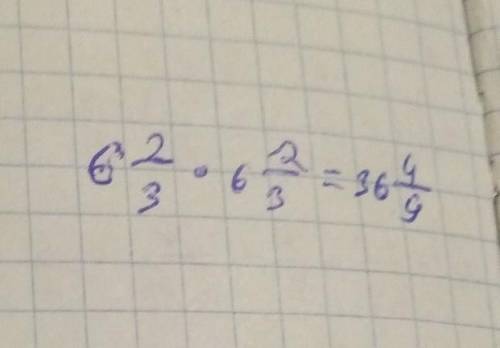 6 2/3 · 6 2/3 = 36 4/9